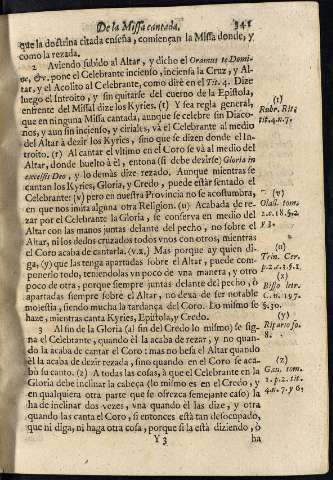 De la Missa cantada. 341
que la doctrina citada enseña, comiençan la Missa donde, y
como la rezada.
2 Aviendo subido al Altar, y dicho el Oramus te Domi-
ne, &c. pone el Celebrante incienso, inciensa la Cruz, y Al-
tar, y el Acolito al Celebrante, como dirè en el Tit. 4. Dize
luego el Introito, y sin quitarse del cuerno de la Epistola,
enfrente del Missal dize los Kyries. (t) Y sea regla general,
que en ninguna Missa cantada, aunque se celebre sin Diaco-
nos, y aun sin incienso, y ciriales, và el Celebrante al medio
del Altar à dezir los Kyries, sino que se dizen donde el In-
troito. (t) Al cantar el vltimo en el Coro se và al medio del
Altar, donde buelto à èl, entona (si debe dezirse) Gloria in
excelsis Deo, y lo demàs dize rezado. Aunque mientras se
cantan los Kyries, Gloria, y Credo, puede estàr sentado el
Celebrante (v) pero en nuestra Provincia no se acostumbra,
en que nos imita algina otra Religion. (u) Acabada de re-
zar por el Celebrante la Gloria, se conserva en medio del
Altar con las manos juntas delante del pecho, no sobre el
Altar, ni los dedos cruzados todos vnos con otros, mientras
el Coro acaba de cantarla. (v.x.) Mas porque ay quien di-
ga, (y) que las tenga apartadas sobre el Altar, puede com-
ponerlo todo, teniendolas vn poco de vna manera, y otro
poco de otra, porque siempre juntas delante del pecho, ò
apartadas siempre sobre el Altar, no dexa de ser notable
molestia, siendo mucha la tardança del Coro. Lo mismo se
haze, mientras canta Kyries, Epistola, y Credo.
3 Al fin de la Gloria (al fin del Credo lo mismo) se sig-
na el Celebrante, quando èl la acaba de rezar, y no quan-
do la acaba de cantar el Coro: mas no besa el Altar quando
èl la acaba de dezir rezada, sino quando en el Coro se aca-
bò su canto. (z) A todas las cosas, à que el Celebrante en la
Gloria debe inclinar la cabeça (lo mismo es en el Credo, y
en qualquiera otra parte que se ofrezca semejante caso) la
ha de inclinar dos vezes, vna quando èl las dize, y otra
quando las canta el Coro, si entonces està tan desocupado,
que ni diga, ni haga otra cosa, porque si la està diziendo, ò
Y 3 ha
(t)
Rubr. Rit.
tit. 4. n. 7.
(v)
2. s. 18. §. 2
(u)
Trin. Cer.
(x)
Bisso letr.
C. n. 197.
§. 30.
(y)
8.
(z)
1. p. 2. tit.
4. n. 7. y 6,